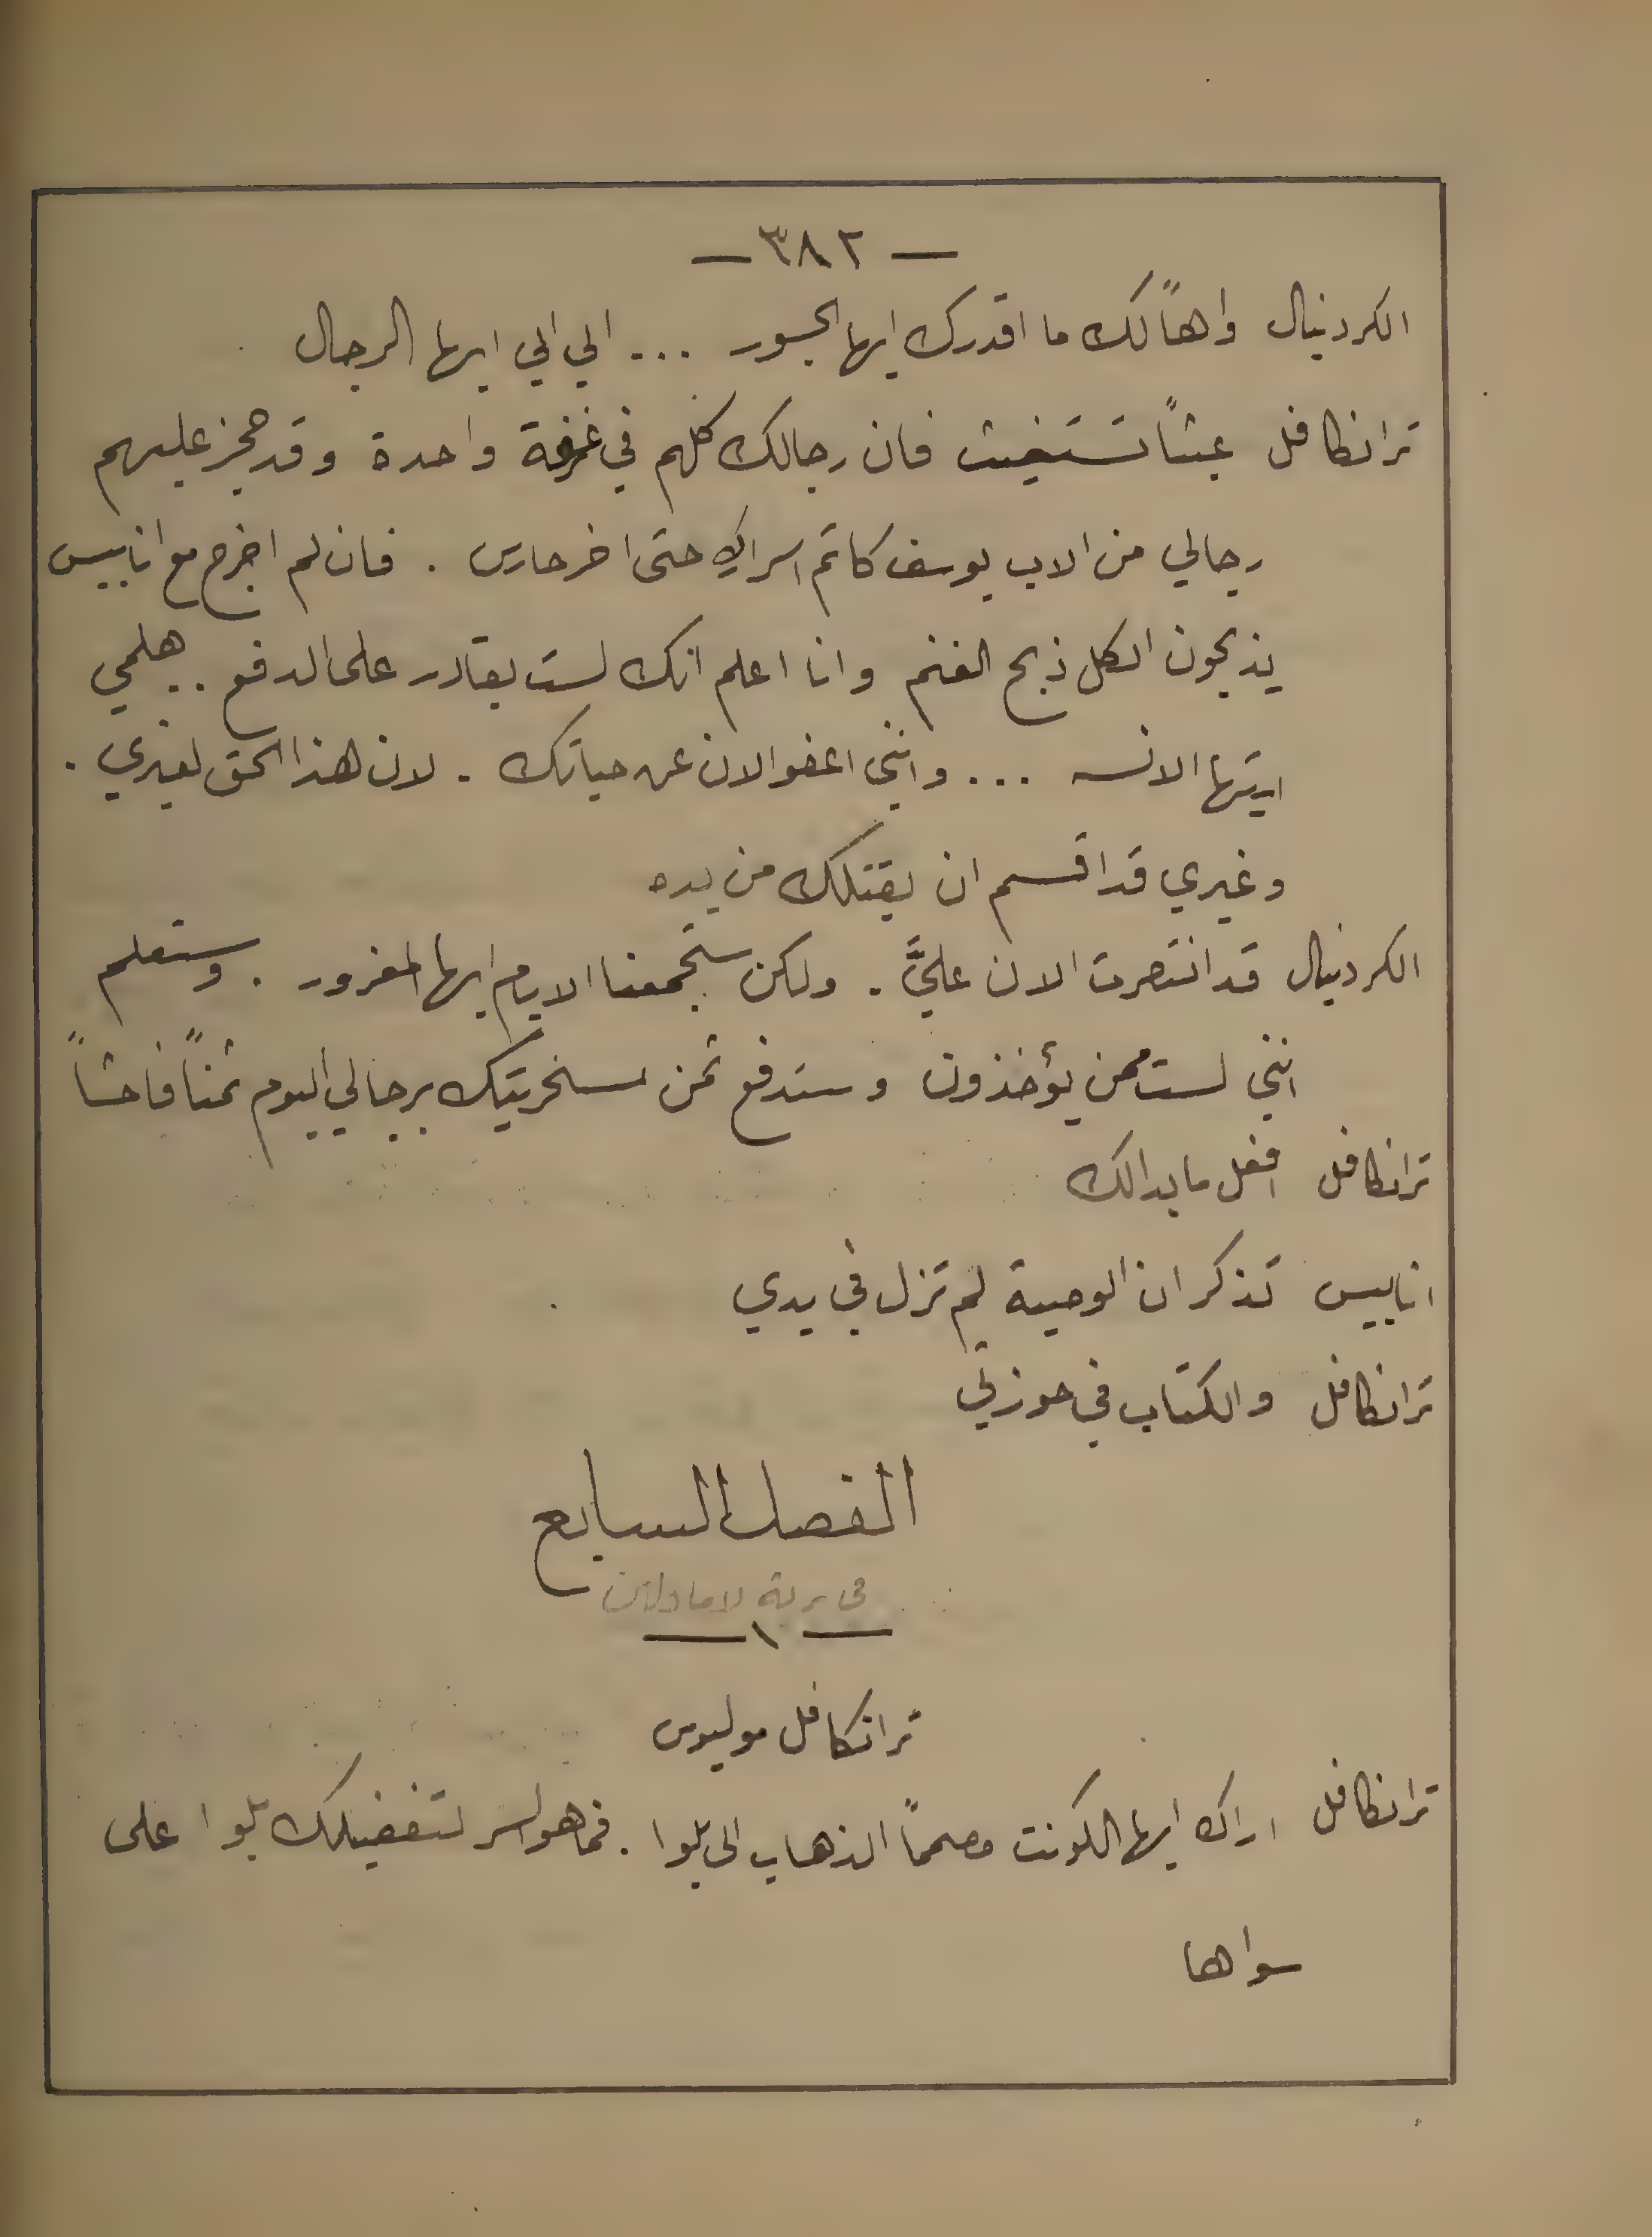 — ٣٨٢ —
الكردينال واهاً لك ما اقدرك ايها الجسور ... الي الي ايها الرجال
ترانكافل عبثاً تستغيث فان رجالك كلهم في غرفة واحدة وقد حجز عليهم
رجالي من الاب يوسف كاتم اسرارك حتى اخر حارس . فان لم اخرج مع انابيس
يذبحون الكل ذبح الغنم وانا اعلم انك لست بقادر على الدفع .. هلمي
ايتها الانسه ... وانني اعفو الان عن حياتك . لان هذا الحق لغيري .
وغيري قد اقسم ان يقتلك من يده
الكردينال قد انتصرت الان عليَّ . ولكن ستجمعنا الايام ايها المغرور . وستعلم
انني لست ممن يؤخذون وستدفع ثمن سخريتك برجالي اليوم ثمناً فاحشاً
ترانكافل افعل ما بدالك
انابيس تذكر ان الوصية لم تزل في يدي
ترانكافل والكتاب في حوزتي
الفصل السابع
في برية لامادلين
— ١ —
ترانكافل موليوس
ترانكافل اراك ايها الكونت مصمماً الذهاب الى بلوا . فما هو السر لتفضيلك بلوا على
سواها